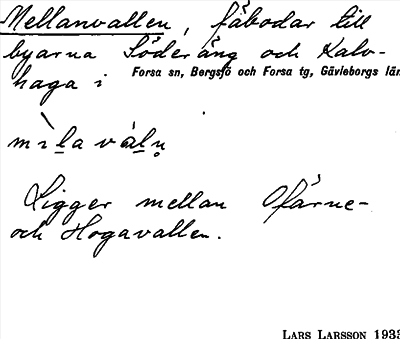 Mellanvallen, fäbodar till
byarna Söderäng och Kalv-
haga i Forsa sn, Bergsjö och Forsa tg, Gävleborgs län
mìḻa váḻn̥
Ligger mellan Ofärne-
och Hogavallen.
LARS LARSSON 1933